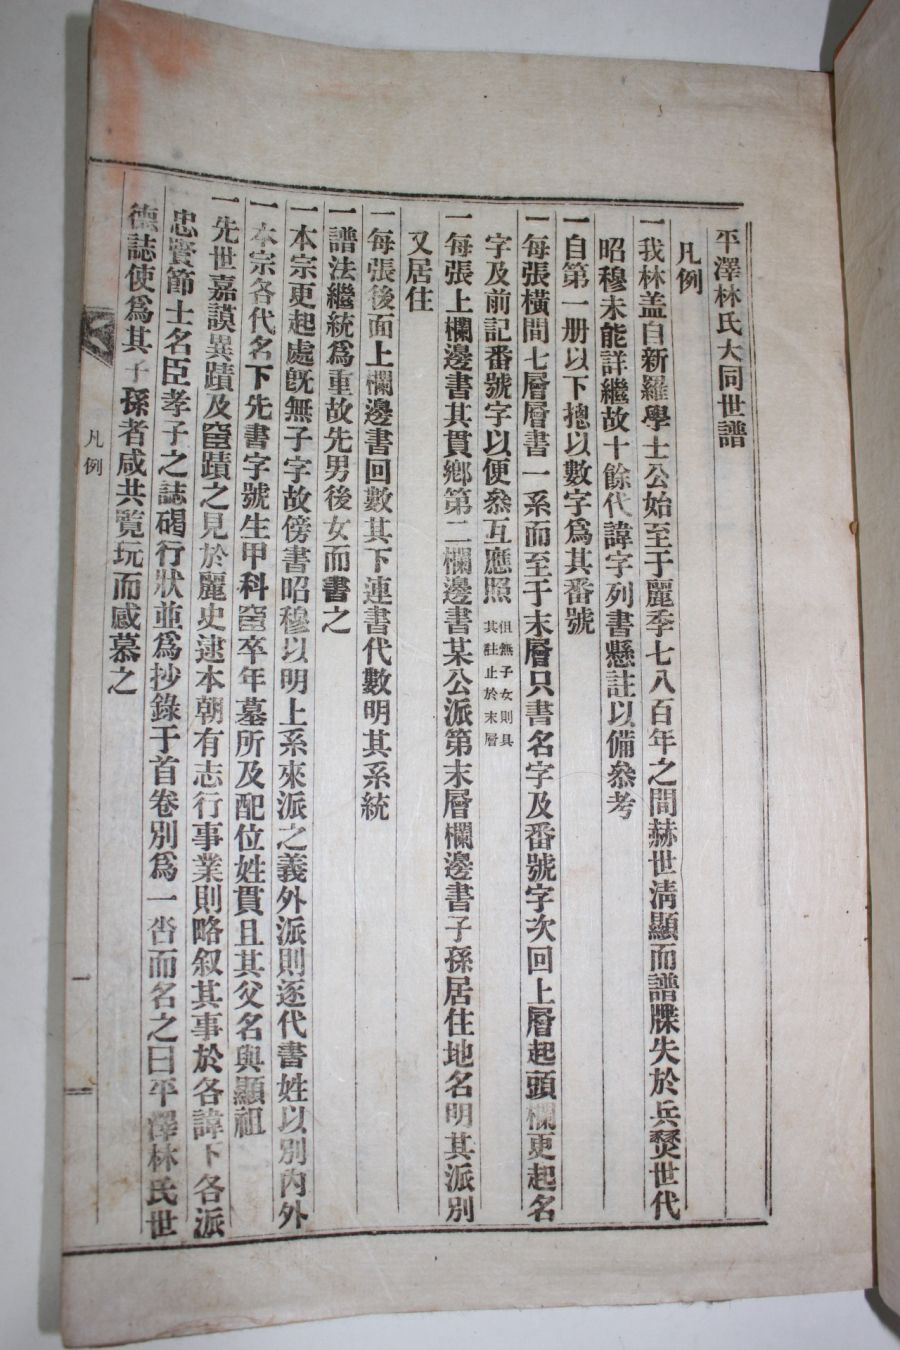 平澤林氏大同世譜
凡例
一我林盖自新羅學士公始至于麗季七八百年之間赫世淸顯而譜牒失於兵燹世代
昭穆未能詳繼故十餘代諱字列書懸註以備叅考
一自第一册以下摠以數字爲其番號
一每張橫間七層層書一系而至于末層只書名字及番號字次回上層起頭欄更起名
字及前記番號字以便叅互應照 俱無子女則具
其註止於末層
一每張上欄邊書其貫鄕第二欄邊書某公派第末層欄邊書子孫居住地名明其派別
又居住
一每張後面上欄邊書回數其下連書代數明其系統
一譜法繼統爲重故先男後女而書之
一本宗更起處旣無子字故傍書昭穆以明上系來派之義外派則逐代書姓以別內外
一本宗各代名下先書字號生甲科宦卒年墓所及配位姓貫且其父名與顯祖
一先世嘉謨異蹟及宦蹟之見於麗史逮本朝有志行事業則略叙其事於各諱下各派
忠賢節士名臣孝子之誌碣行狀並爲抄錄于首卷別爲一呇而名之曰平澤林氏世
德誌使爲其子孫者咸共覽玩而感慕之
凡例
一